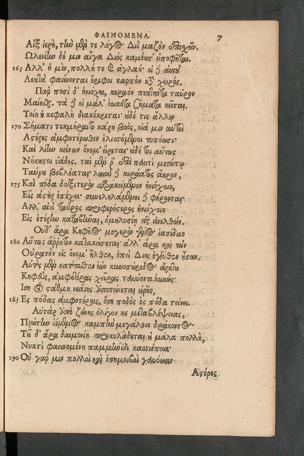 ΦΑΙΝΟΜΕΝΑ. 7
Αἲξ ἱερὴ, τὴν μέν τε λόγος Διὶ μαζὸν ἐπισχεῖν.
Ὠλενίην δέ μιν αἶγα Διὸς καλέουσ' ὑποφῆται.
165 Ἀλλ' ἡ μὲν, πολλή τε καὶ ἀγλαή· οἱ δ' αὐτοῦ
Λεπτὰ φαείνονται ἔριφοι καρπὸν κατὰ χειρός.
Πὰρ ποσὶ δ' ἡνιόχου, κεραὸν πεπτηῶτα ταῦρον
Μαίεσθαι. τὰ δέ οἱ μάλ' ἐοικότα σήματα κεῖται.
Τοίη οἱ κεφαλὴ διακέκριται· οὐδέ τις ἄλλῳ
170 Σήματι τεκμήραιτο κάρη βοὸς, οἷά μιν αὐτοὶ
Ἀστέρες ἀμφοτέρωθεν ἑλισσόμενοι τυπόωσι·
Καὶ λίην κείνων ὄνομ' εἴρεται· οὐδέ τοι αὔτως
Νήκουστοι ὑάδες. ταὶ μέν ῥ' ἐπὶ παντὶ μετώπῳ
Ταύρου βεβλέαται· λαιοῦ δὲ κεράατος ἄκρον,
175 Καὶ πόδα δεξιτερὸν παρακειμένου ἡνιόχοιο,
Εἷς ἀστὴρ ἐπέχει· συνεληλάμενοι δὲ φέρονται.
Ἀλλ' αἰεὶ ταῦρος προφερέστερος ἡνιόχοιο
Εἰς ἑτέρην καταβῆναι, ὁμηλυσίῃ περ ἀνελθών.
Οὐδ' ἄρα Κηφῆος μογερὸν γένος ἰασίδαο
180 Αὔτως ἄῤῥητον κατακείσεται· ἀλλ' ἄρα καὶ τῶν
Οὐρανὸν εἰς ὄνομ' ἦλθεν, ἐπεὶ Διὸς ἐγγύθεν ἦσαν.
Αὐτὸς μὲν κατόπισθεν ἐὼν κυνοσουρίδος ἄρκτου
Κηφεὺς, ἀμφοτέρας χεῖρας τανύοντι ἐοικώς·
Ἴση οἱ στάθμη νεάτης ἀποτείνεται οὐρῆς,
185 Ἐς πόδας ἀμφοτέρους, ὅση ποδὸς ἐς πόδα τείνει.
Αὐτὰρ ἀπὸ ζώνης ὀλίγον κε μεταβλέψειας,
Πρώτην ἱέμενος καμπὴν μεγάλοιο δράκοντος·
Τῷ δ' ἄρα δαιμονίη προκυλίνδεται οὐ μάλα πολλὴ,
Νυκτὶ φαεινομένη παμμήνιδι κασσιέπεια·
190 Οὐ γάρ μιν πολλοὶ καὶ ἐπημοιβοὶ γανόωσιν
Ἀστέρες